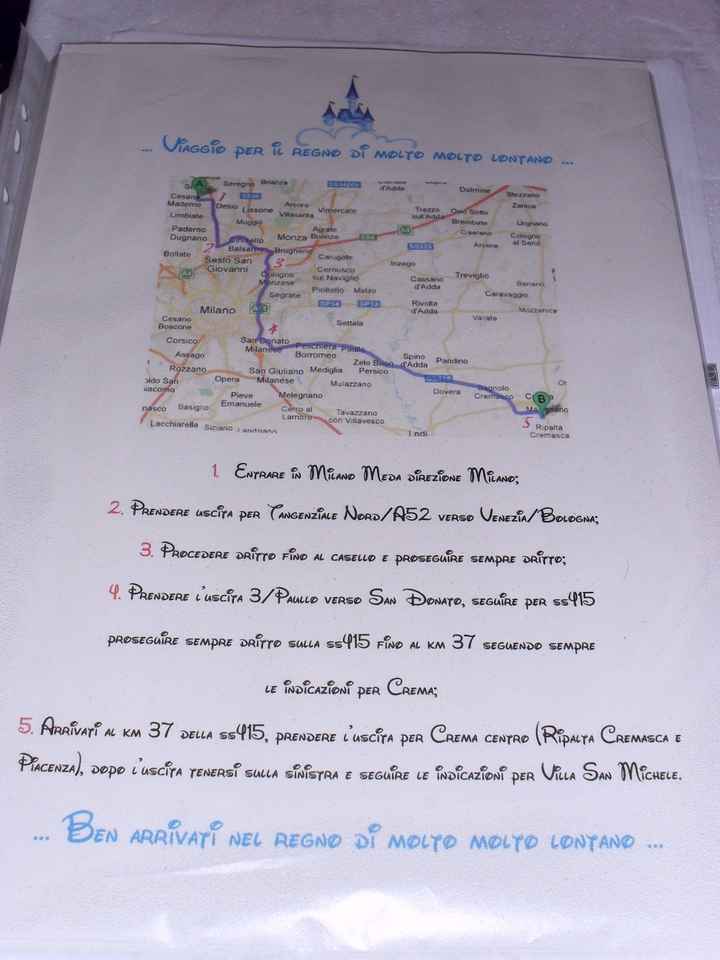 ... Viaggio per il regno di molto molto lontano ...
A
Seregno Brianza
d'Adda
Dalmine
Stezzano
Cesano Maderno
1
Desio
Lissone
Arcore
Vimercate
Trezzo sull'Adda
Osio Sotto
Zanica
Limbiate
Muggiò
Villasanta
Brembate
Urgnano
Paderno Dugnano
2
Cinisello Balsamo
Monza
Agrate Brianza
Ciserano
Cologno al Serio
Bollate
Sesto San Giovanni
Brugherio
3
Carugate
Arcene
Cologno Monzese
Cernusco sul Naviglio
Inzago
Cassano d'Adda
Treviglio
Pioltello
Melzo
Caravaggio
Segrate
Milano
Rivolta d'Adda
Mozzanica
Cesano Boscone
Settala
Vailate
4
Corsico
San Donato Milanese
Peschiera Borromeo
Paullo
Assago
Zelo Buon Persico
Spino d'Adda
Pandino
Rozzano
San Giuliano Milanese
Mediglia
Opera
Mulazzano
Dovera
Bagnolo Cremasco
B
Pieve Emanuele
Melegnano
Basiglio
Cerro al Lambro
Tavazzano con Villavesco
5
Ripalta Cremasca
Lacchiarella
Siziano
Landriano
Lodi
1. Entrare in Milano Meda direzione Milano;
2. Prendere uscita per Tangenziale Nord/A52 verso Venezia/Bologna;
3. Procedere dritto fino al casello e proseguire sempre dritto;
4. Prendere l'uscita 3/Paullo verso San Donato, seguire per ss415
proseguire sempre dritto sulla ss415 fino al km 37 seguendo sempre
le indicazioni per Crema;
5. Arrivati al km 37 della ss415, prendere l'uscita per Crema centro (Ripalta Cremasca e
Piacenza), dopo l'uscita tenersi sulla sinistra e seguire le indicazioni per Villa San Michele.
... Ben arrivati nel regno di molto molto lontano ...